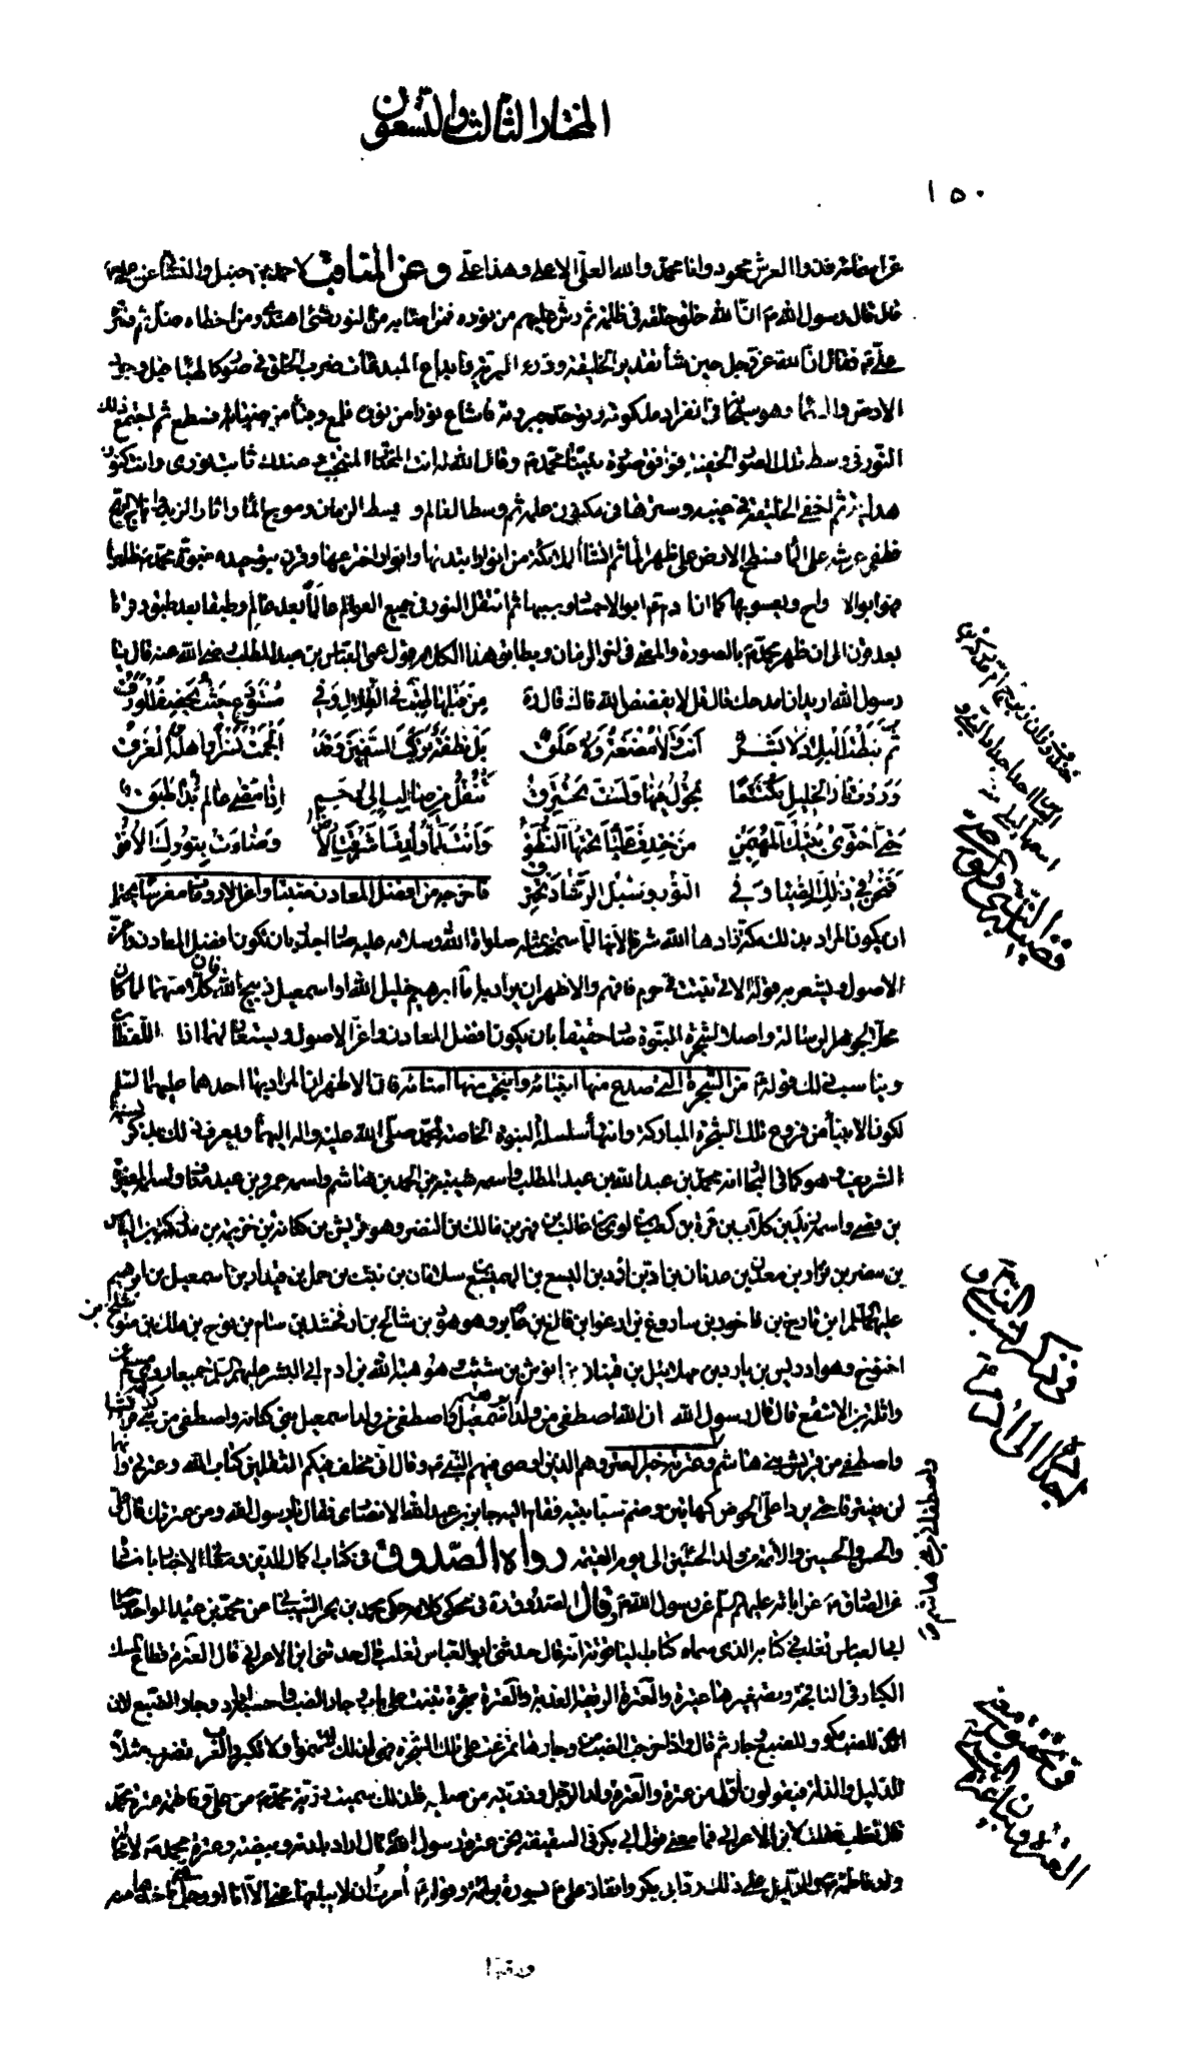 المختار الثالث والتسعون
١٥٠
فذو العرش محمود وانا محمد والله العلى الاعلى وهذا على وعن المناقب لاحمد بن حنبل والنسائى عن
قال قال رسول الله ان الله خلق خلقه فى ظلمة ثم رش عليهم من نوره فمن اصابه من النور شئ اهتدى ومن اخطاه ضل ثم فسره
على فقال ان الله عز وجل حين شاء تقدير الخليقة وذرء البرية وابداع المبدعات ضرب الخلق فى صور كالهباء قبل وجود
الارض والسماء وهو سبحانه فى انفراد ملكوته وتوحد جبروته فاشاع نورا من نوره فلمع وقبسا من ضيائه فسطع ثم اجتمع ذلك
النور فى وسط تلك الصور الخفية فوافق صورة نبينا محمد وقال الله له انت المختار المنتخب وعندك ثابت نورى وانت كنوز
هدايتى ثم اخفى الخليقة فى غيبه وسترها فى مكنون علمه ثم وسط العالم وبسط الزمان وموج الماء واثار الزبد واهاج الريح
فطفى عرشه على الماء فسطح الارض على ظهر الماء ثم انشاء الملائكة من انوار ابتدعها وانوار اخترعها وقرن بتوحيده نبوة محمد ظاهرا
فهو ابو الارواح ويعسوبها كما ان ادم ابو الاجساد وسببها ثم انتقل النور فى جميع العوالم عالما بعد عالم وطبقا بعد طبق وقرنا
بعد قرن الى ان ظهر محمد بالصورة والمعنى فى اخر الزمان ويطابق هذا الكلام قول عمه العباس بن عبد المطلب رضى الله عنه قال يا
رسول الله اريد ان امدحك قال قل لا يفضض الله فاك قال
من قبلها طبت فى الظلال وفى مستودع حيث يخصف الورق
ثم هبطت البلاد لا بشر انت ولا مضغة ولا علق بل نطفة تركب السفين وقد الجم نسرا واهله الغرق
وردت نار الخليل مكتتما تجول فيها ولست تحترق تنقل من صالب الى رحم اذا مضى عالم بدا طبق
حتى احتوى بيتك المهيمن من خندف علياء تحتها النطق وانت لما ولدت اشرقت الارض وضاءت بنورك الافق
فنحن فى ذلك الضياء وفى النور وسبل الرشاد نخترق فاخرجه من افضل المعادن منبتا واعز الارومات مغرسا يحتمل
ان يكون المراد بذلك مكة زادها الله شرفا لانها لما سمحت بمثله صلوات الله وسلامه عليه حقا جدير بان تكون افضل المعادن واعز
الاصول يشعر به قوله الاتى نبتت فى حرم فافهم والاظهر ان يراد بها ابرهيم خليل الله او اسمعيل ذبيح الله فان كلا منهما لما كان
محل الجوهر الرسالة واصلا لشجرة النبوة صار حقيقا بان يكون افضل المعادن واعز الاصول ويستعار لهما هذا اللفظان
ويناسب ذلك قوله من الشجرة التى صدع منها انبيائه وانتجب منها امنائه فان الاظهر ان المراد بها احدهما عليهما السلم
لكون الانبياء من فروع تلك الشجرة المباركة وانتهاء سلسلة النبوة الخاصة لمحمد صلى الله عليه واله اليهما ويعرف ذلك بذكر نسبه
الشريف وهو كما فى البحار انه محمد بن عبد الله بن عبد المطلب واسمه شيبة الحمد بن هاشم واسمه عمرو بن عبد مناف واسمه المغيرة
بن قصى واسمه زيد بن كلاب بن مرة بن كعب بن لوى بن غالب بن فهر بن مالك بن النضر وهو قريش بن كنانة بن خزيمة بن مدركة بن الياس
بن مضر بن نزار بن معد بن عدنان بن اد بن ادد بن اليسع بن الهميسع بن سلامان بن نبت بن حمل بن قيدار بن اسمعيل بن ابرهيم
عليهما السلم ابن تارخ بن ناخور بن ساروغ بن ارعوا بن فالغ بن عابر وهو هود بن شالخ بن ارفخشد بن سام بن نوح بن ملك بن متوشلخ بن
اخنوخ وهو ادريس بن يارد بن مهلائيل بن قينان بن انوش بن شيث وهو هبة الله بن ادم ابى البشر عليهم السلم جميعا روى مسلم عن
واثلة بن الاسقع قال قال رسول الله ان الله اصطفى من ولد ابرهيم اسمعيل واصطفى من ولد اسمعيل بنى كنانة واصطفى من بنى كنانة قريشا
واصطفى من قريش بنى هاشم وعترته خير العتر وهم الذين اوصى فيهم النبى وقال انى مخلف فيكم الثقلين كتاب الله وعترتى وانهما
لن يفترقا حتى يردا على الحوض كهاتين وضم سبابتيه فقام اليه جابر بن عبد الله الانصارى فقال يا رسول الله ومن عترتك قال على
والحسن والحسين والائمة من ولد الحسين الى يوم القيمة رواه الصدوق فى كتاب اكمال الدين
عن الصادق عن ابائه عليهم السلم عن رسول الله وقال الصدوق فى محكى كلامه حكى محمد بن بحر الشيبانى عن محمد بن عبد الواحد صاحب
ابى العباس ثعلب فى كتابه الذى سماه كتاب الياقوتة انه قال حدثنى ابو العباس ثعلب قال حدثنى ابن الاعرابى قال العترة قطاع المسك
الكبار فى النافجة وتصغيرها عتيرة والعترة الريقة العذبة والعترة شجرة تنبت على باب وجار الضب واحسبه اراد وجار الضبع لان
الذى للضب مكو وللضبع وجار ثم قال واذا خرجت الضب من وجارها تمرغت على تلك الشجرة فهى لذلك لا تنمو ولا تكبر والعرب تضرب مثلا
للذليل والذلة فيقولون اذل من عترة والعترة ولد الرجل وذريته من صلبه فلذلك سميت ذرية محمد من على وفاطمة عترة محمد
قال ثعلب فقلت لابن الاعرابى فما معنى قول ابى بكر فى السقيفة نحن عترة رسول الله قال اراد بلدته وبيضته وعترة محمد لا محالة
ولد فاطمة والدليل على ذلك رد ابى بكر وانفاذ على بسورة برائة وقوله امرت ان لا يبلغها عنى الا انا او رجل منى فاخذها منه
فى ذكر نسب النبى و
اجداده الى ادم
واصطفانى من بنى هاشم
فى تحقيق معنى